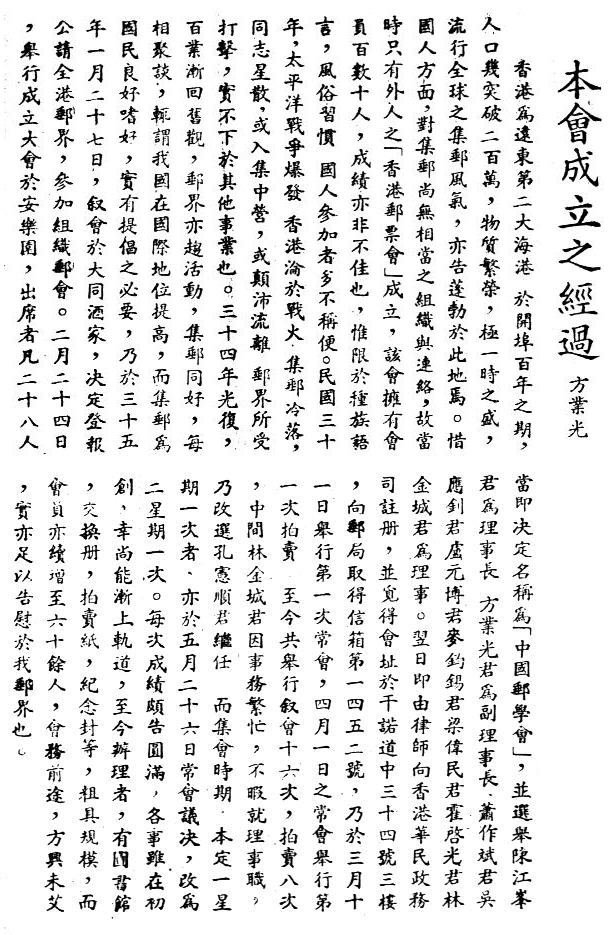 本會成立之經過 方業光
香港爲遠東第二大海港 於開埠百年之期，
人口幾突破二百萬，物質繁榮，極一時之盛，
流行全球之集郵風氣，亦告蓬勃於此地焉。惜
國人方面，對集郵尚無相當之組織與連絡，故當
時只有外人之「香港郵票會」成立，該會擁有會
員百數十人，成績亦非不佳也，惟限於種族語
言，風俗習慣 國人參加者多不稱便。民國三十
年，太平洋戰爭爆發 香港淪於戰火 集郵冷落，
同志星散，或入集中營，或顛沛流離 郵界所受
打擊，實不下於其他事業也。三十四年光復，
百業漸回舊觀，郵界亦趨活動，集郵同好，每
相聚談，輒謂我國在國際地位提高，而集郵爲
國民良好嗜好，實有提倡之必要，乃於三十五
年一月二十七日，叙會於大同酒家，決定登報
公請全港郵界，參加組織郵會。二月二十四日
，舉行成立大會於安樂園，出席者凡二十八人
當即決定名稱爲「中國郵學會」，並選舉陳江峯
君爲理事長 方業光君爲副理事長、蕭作斌君吳
應釗君盧元博君麥鈞錫君梁偉民君霍啓光君林
金城君爲理事。翌日即由律師向香港華民政務
司註册，並覓得會址於干諾道中三十四號三樓
，向郵局取得信箱第一四五二號，乃於三月十
一日舉行第一次常會，四月一日之常會舉行第
一次拍賣 至今共舉行叙會十六次，拍賣八次
，中間林金城君因事務繁忙，不暇就理事職，
乃改選孔憲順君繼任 而集會時期．本定一星
期一次者、亦於五月二十六日常會議決，改爲
二星期一次。每次成績頗告圓滿，各事雖在初
創，幸尚能漸上軌道，至今辦理者，有圖書館
，交換册，拍賣紙，紀念封等，粗具規模，而
會員亦續增至六十餘人，會務前途，方興未艾
，實亦足以告慰於我郵界也。